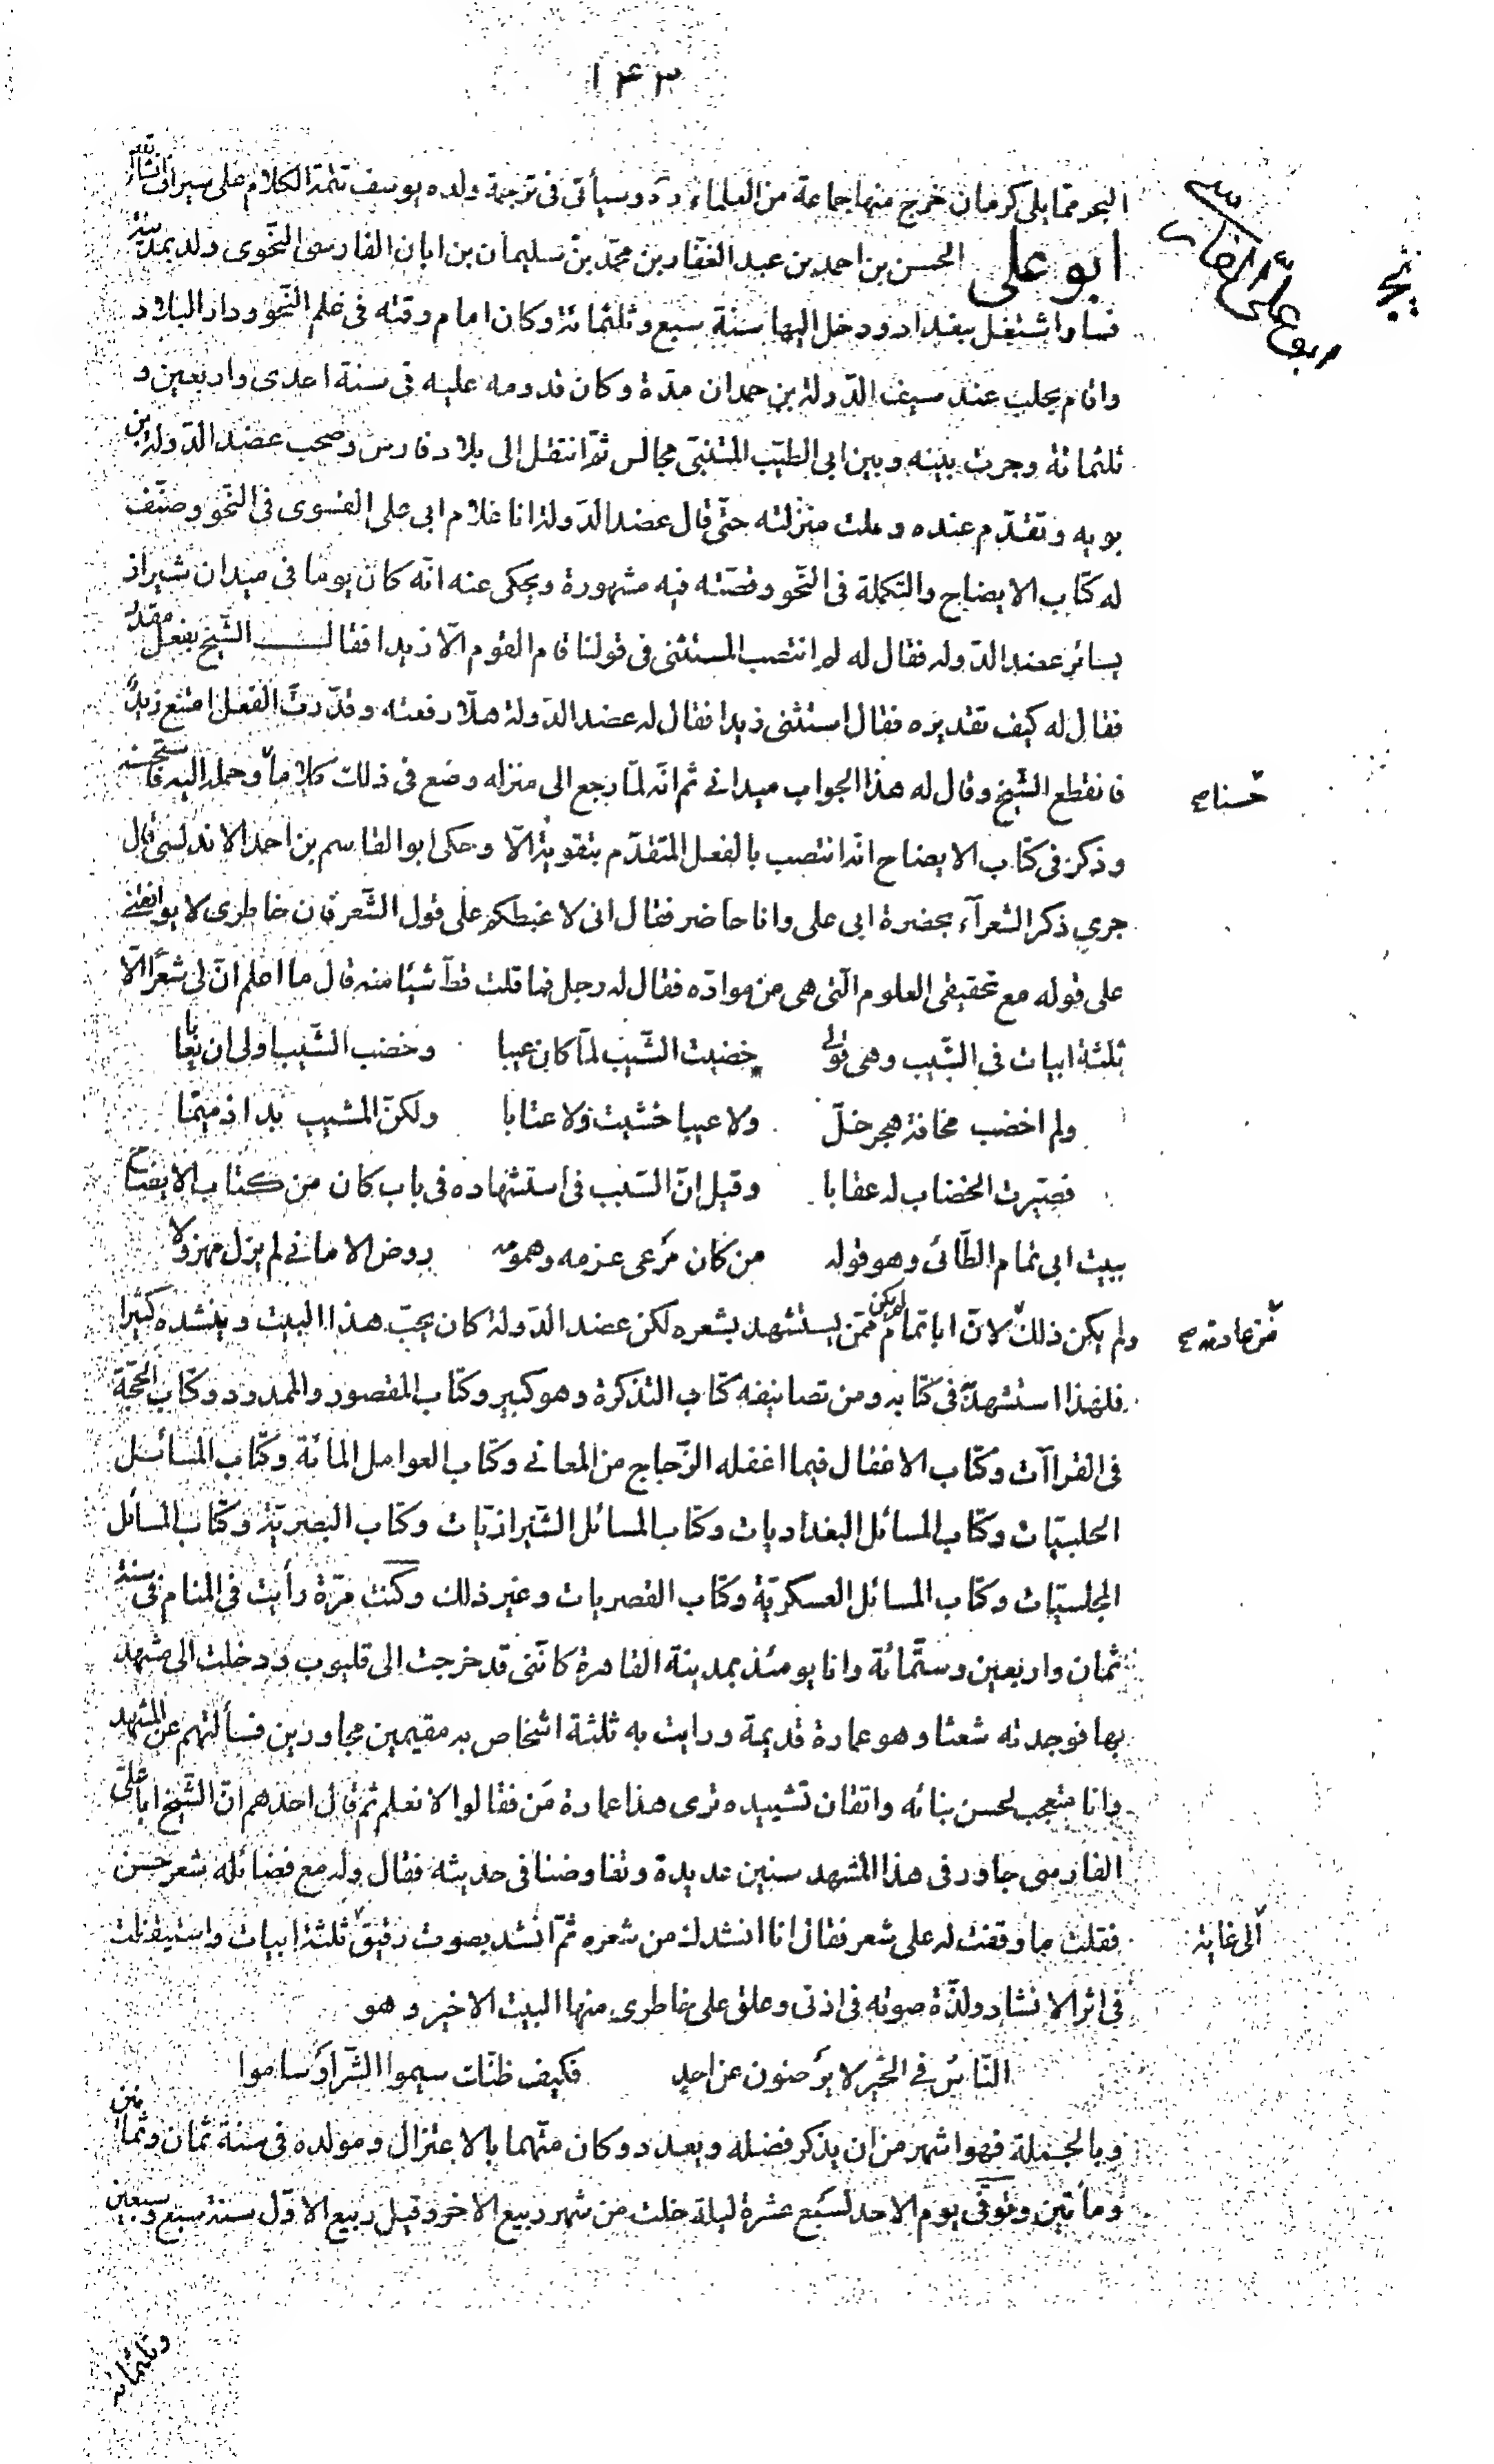 ١٤٣
البحر مما يلى كرمان خرج منها جماعة من العلماء وسيأتى فى ترجمة ولده يوسف تتمة الكلام على سيراف انشاء الله
ابو على الحسن بن احمد بن عبد الغفار بن محمّد بن سليمان بن ابان الفارسى النّحوى ولد بمدينة
ابو على الفارسى
نحوى
فسا واشتغل ببغداد ودخل اليها سنة سبع وثلثمائة وكان امام وقته فى علم النّحو ودار البلاد
واقام بحلب عند سيف الدّولة بن حمدان مدّة وكان قدومه عليه فى سنة احدى واربعين و
ثلثمائة وجرت بينه وبين ابى الطيّب المتنبّى مجالس ثمّ انتقل الى بلاد فارس وصحب عضد الدّولة بن
بويه وتقدّم عنده وعلت منزلته حتّى قال عضد الدّولة انا غلام ابى على الفسوى فى النّحو وصنّف
له كتاب الايضاح والتكملة فى النّحو وقصّته فيه مشهورة ويحكى عنه انّه كان يوما فى ميدان شيراز
يساير عضد الدّولة فقال له لم انتصب المستثنى فى قولنا قام القوم الّا زيدا فقال الشّيخ بفعل مقدّر
فقال له كيف تقديره فقال استثنى زيدا فقال له عضد الدّولة هلّا رفعته وقدّرت الفعل امتنع زيدٌ
فانقطع الشّيخ وقال له هذا الجواب ميدانى ثم انّه لمّا رجع الى منزله وضع فى ذلك كلاما وحمله اليه فاستحسنه
حسنا صح
وذكر فى كتاب الايضاح انّه انتصب بالفعل المتقدّم بتقوية الّا وحكى ابو القاسم بن احمد الاندلسى قال
جرى ذكر الشعرآء بحضرة ابى على وانا حاضر فقال انى لاغبطكم على قول الشّعر فان خاطرى لا يوافقنى
على قوله مع تحقيقى العلوم الّتى هى من موادّه فقال له رجل فما قلت قطّ شيئا منه قال ما اعلم انّ لى شعرًا الّا
ثلثة ابيات فى الشّيب وهى قولى خضبت الشّيب لمّا كان عيبا وخضب الشّيب اولى ان يعابا
ولم اخضب مخافة هجر خلّ ولا عيبا خشيت ولا عتابا ولكنّ المشيب بدا ذميمًا
فصيّرت الخضاب له عقابا وقيل انّ السّبب فى استشهاده فى باب كان من كتاب الايضاح
ببيت ابى تمام الطّائى وهو قوله من كان مرعى عزمه وهمومه روض الامانى لم يزل مهزولا
ولم يكن ذلك لانّ ابا تمام لم يكن ممّن يستشهد بشعره لكن عضد الدّولة كان يحبّ هذا البيت وينشده كثيرا
من عادته صح
فلهذا استشهد فى كتابه ومن تصانيفه كتاب التذكرة وهو كبير وكتاب المقصور والممدود وكتاب الحجّة
فى القراآت وكتاب الاغفال فيما اغفله الزّجاج من المعانى وكتاب العوامل المائة وكتاب المسائل
الحلبيّات وكتاب المسائل البغداديات وكتاب المسائل الشّيرازيّات وكتاب البصريّة وكتاب المسائل
المجلسيّات وكتاب المسائل العسكريّة وكتاب القصريات وغير ذلك وكنت مرّة رأيت فى المنام فى سنة
ثمان واربعين وستّمائة وانا يومئذ بمدينة القاهرة كانّنى قد خرجت الى قليوب ودخلت الى مشهد
بها فوجدته شعثا وهو عمارة قديمة ورايت به ثلثة اشخاص به مقيمين مجاورين فسألتهم عن المشهد
وانا متعجب لحسن بنائه واتقان تشييده ترى هذا عمارة مَن فقالوا لا نعلم ثم قال احدهم انّ الشّيخ ابا علىّ
الفارسى جاور فى هذا المشهد سنين عديدة وتفاوضنا فى حديثه فقال وله مع فضائله شعر حسن
فقلت ما وقفت له على شعر فقال انا انشدك من شعره ثمّ انشد بصوت رقيق ثلثة ابيات واستيقظت
الى غاية
فى اثر الانشاد ولذّة صوته فى اذنى وعلق على خاطرى منها البيت الاخير وهو
النّاسُ فى الخير لا يرضون عن احدٍ فكيف ظنّك سيموا الشّرّ او ساموا
وبالجملة فهو اشهر من ان يذكر فضله ويعدد وكان متّهما بالاعتزال ومولده فى سنة ثمان وثمانين
ومأتين وتوفّى يوم الاحد لسبع عشرة ليلة خلت من شهر ربيع الاخر وقيل ربيع الاوّل سنة سبع وسبعين
وثلثمائة